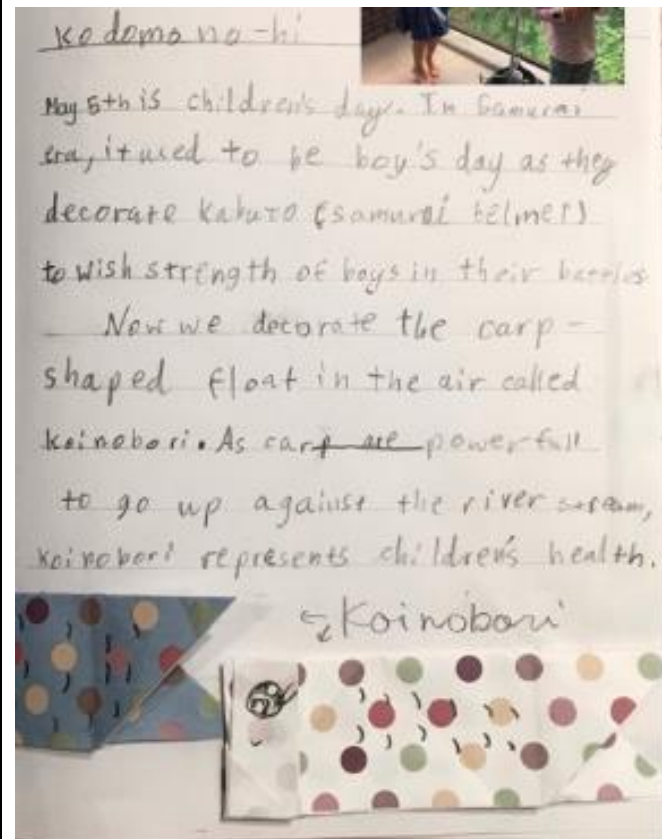 kodomo no-hi
May 5th is children's day. In Samurai
era, it used to be boy's day as they
decorate Kabuto (samurai helmet)
to wish strength of boys in their battles
Now we decorate the carp-
shaped float in the air called
koinobori. As carp are powerfull
to go up against the river stream,
koinobori represents children's health.
Koinobori